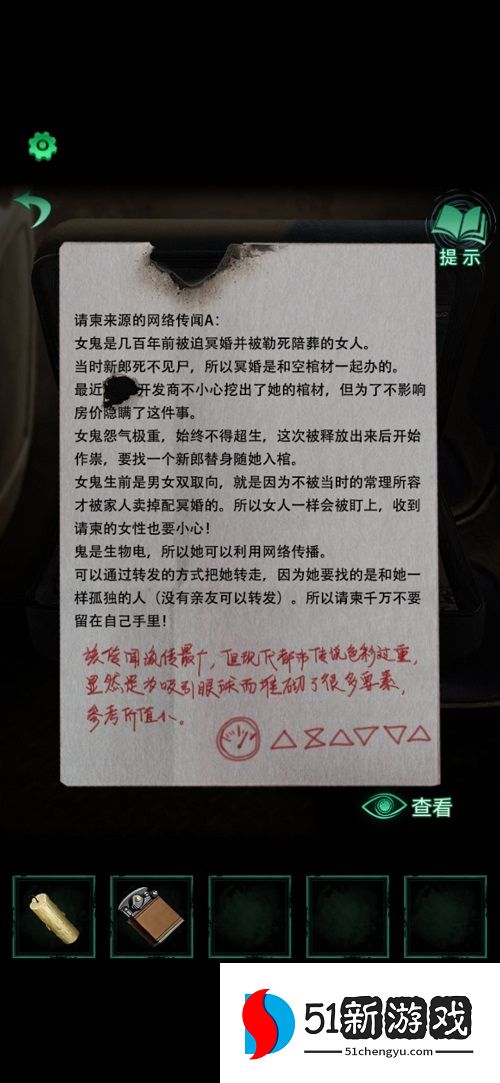 提示
请柬来源的网络传闻A:
女鬼是几百年前被迫冥婚并被勒死陪葬的女人。
当时新郎死不见尸，所以冥婚是和空棺材一起办的。
最近 开发商不小心挖出了她的棺材，但为了不影响
房价隐瞒了这件事。
女鬼怨气极重，始终不得超生，这次被释放出来后开始
作祟，要找一个新郎替身随她入棺。
女鬼生前是男女双取向，就是因为不被当时的常理所容
才被家人卖掉配冥婚的。所以女人一样会被盯上，收到
请柬的女性也要小心！
鬼是生物电，所以她可以利用网络传播。
可以通过转发的方式把她转走，因为她要找的是和她一
样孤独的人（没有亲友可以转发）。所以请柬千万不要
留在自己手里！
该传闻流传最广，但现代都市传说色彩过重，
显然是为吸引眼球而堆砌了很多要素，
参考价值小。
查看
51新游戏
www.51chengyu.com